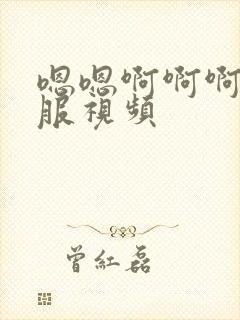 嗯嗯啊啊啊
服視頻
曾紅磊